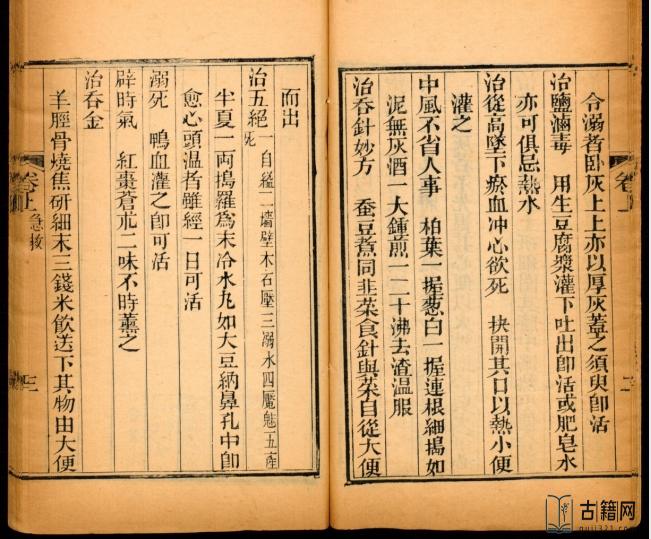 令溺者臥灰上上亦以厚灰蓋之須臾卽活
治鹽滷毒　用生豆腐漿灌下吐出卽活或肥皂水
亦可俱忌熱水
治從高墜下瘀血冲心欲死　抉開其口以熱小便
灌之
中風不省人事　柏葉一握葱白一握連根細搗如
泥無灰酒一大鍾煎一二十沸去渣温服
治吞針妙方　蚕豆煮同韭菜食針與菜自從大便
卷上
二
而出
治五絕　一自縊二墻壁木石壓三溺水四魘魅五產死
半夏一両搗羅爲末冷水丸如大豆納鼻孔中卽
愈心頭温者雖經一日可活
溺死　鴨血灌之卽可活
辟時氣　紅棗蒼朮二味不時薰之
治吞金
羊脛骨燒焦研細末三錢米飲送下其物由大便
卷上
急救
古籍网